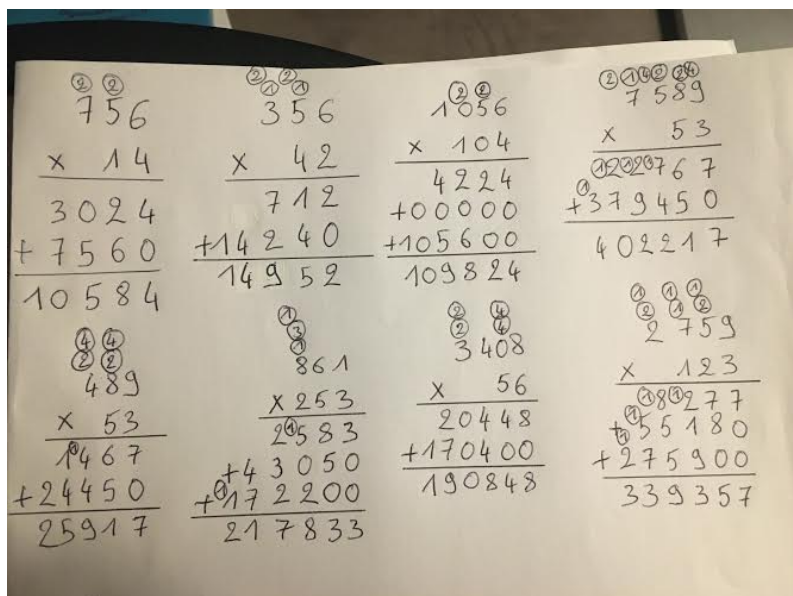 ② ②
756
x 14
3024
+ 7560
10584
② ②
① ①
356
x 42
712
+14240
14952
② ②
1056
x 104
4224
+00000
+105600
109824
② ① ④ ② ② ④
7589
x 53
①2①2①767
①
+379450
402217
④ ④
② ②
489
x 53
1①467
+24450
25917
①
③
①
861
x 253
2①583
+43050
+①172200
217833
② ④
② ④
3408
x 56
20448
+170400
190848
① ① ①
② ① ②
2759
x 123
①8①277
+①55180
①
+275900
339357